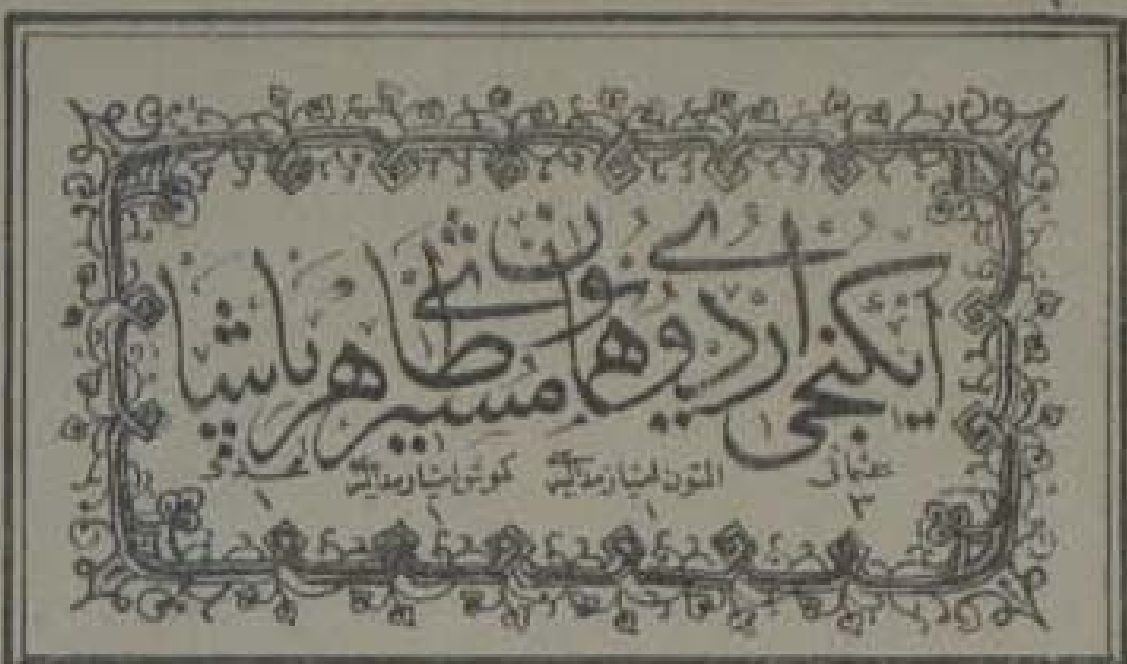 ایکنجی اردوی همایون مشیری طاهر پاشا
عثمانی التون امتیاز مدالیه‌سی کموش امتیاز مدالیه‌سی مجیدی
٣ ١ ١ ١